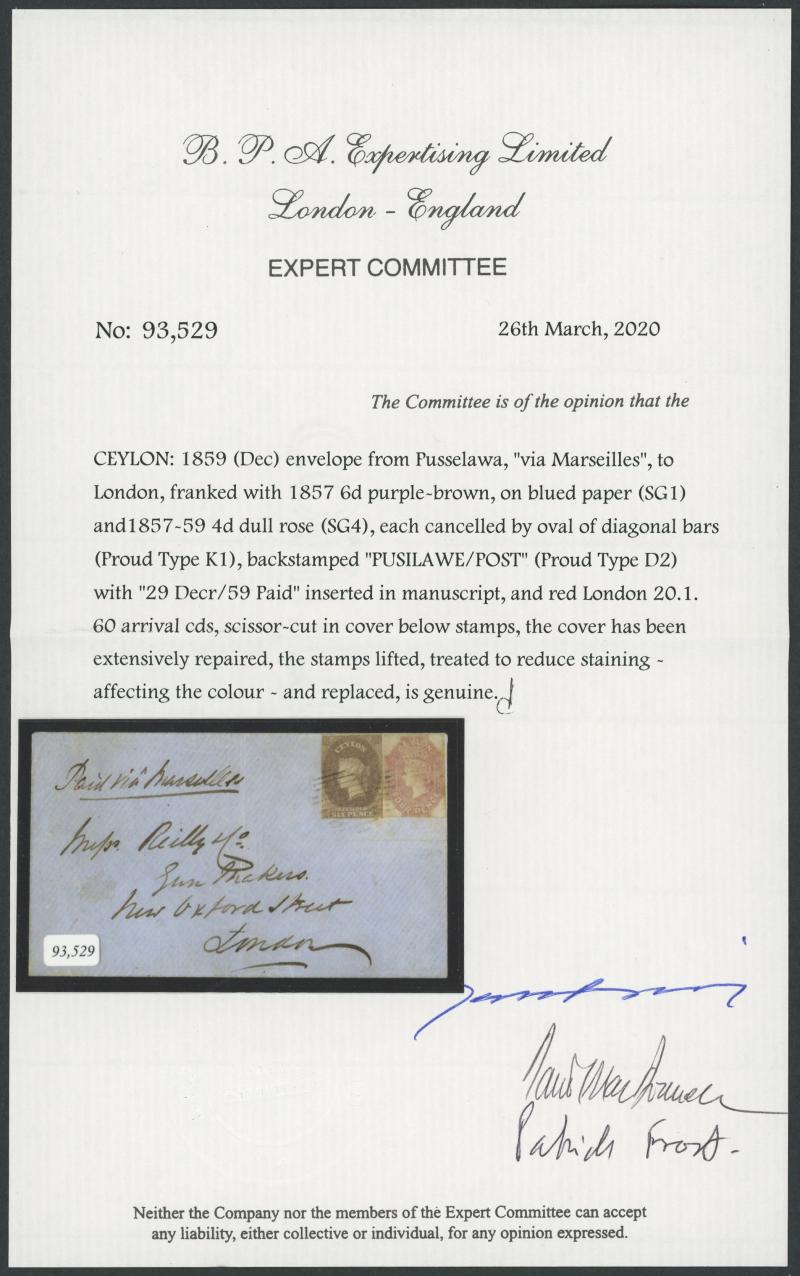 B. P. A. Expertising Limited
London - England
EXPERT COMMITTEE
No: 93,529
26th March, 2020
The Committee is of the opinion that the
CEYLON: 1859 (Dec) envelope from Pusselawa, "via Marseilles", to
London, franked with 1857 6d purple-brown, on blued paper (SG1)
and1857-59 4d dull rose (SG4), each cancelled by oval of diagonal bars
(Proud Type K1), backstamped "PUSILAWE/POST" (Proud Type D2)
with "29 Decr/59 Paid" inserted in manuscript, and red London 20.1.
60 arrival cds, scissor-cut in cover below stamps, the cover has been
extensively repaired, the stamps lifted, treated to reduce staining -
affecting the colour - and replaced, is genuine.
CEYLON
SIX PENCE
Paid via Marseilles
Messrs. Reilly & Co.
Gun Makers.
New Oxford Street
London
93,529
Patrick Frost.
Neither the Company nor the members of the Expert Committee can accept
any liability, either collective or individual, for any opinion expressed.